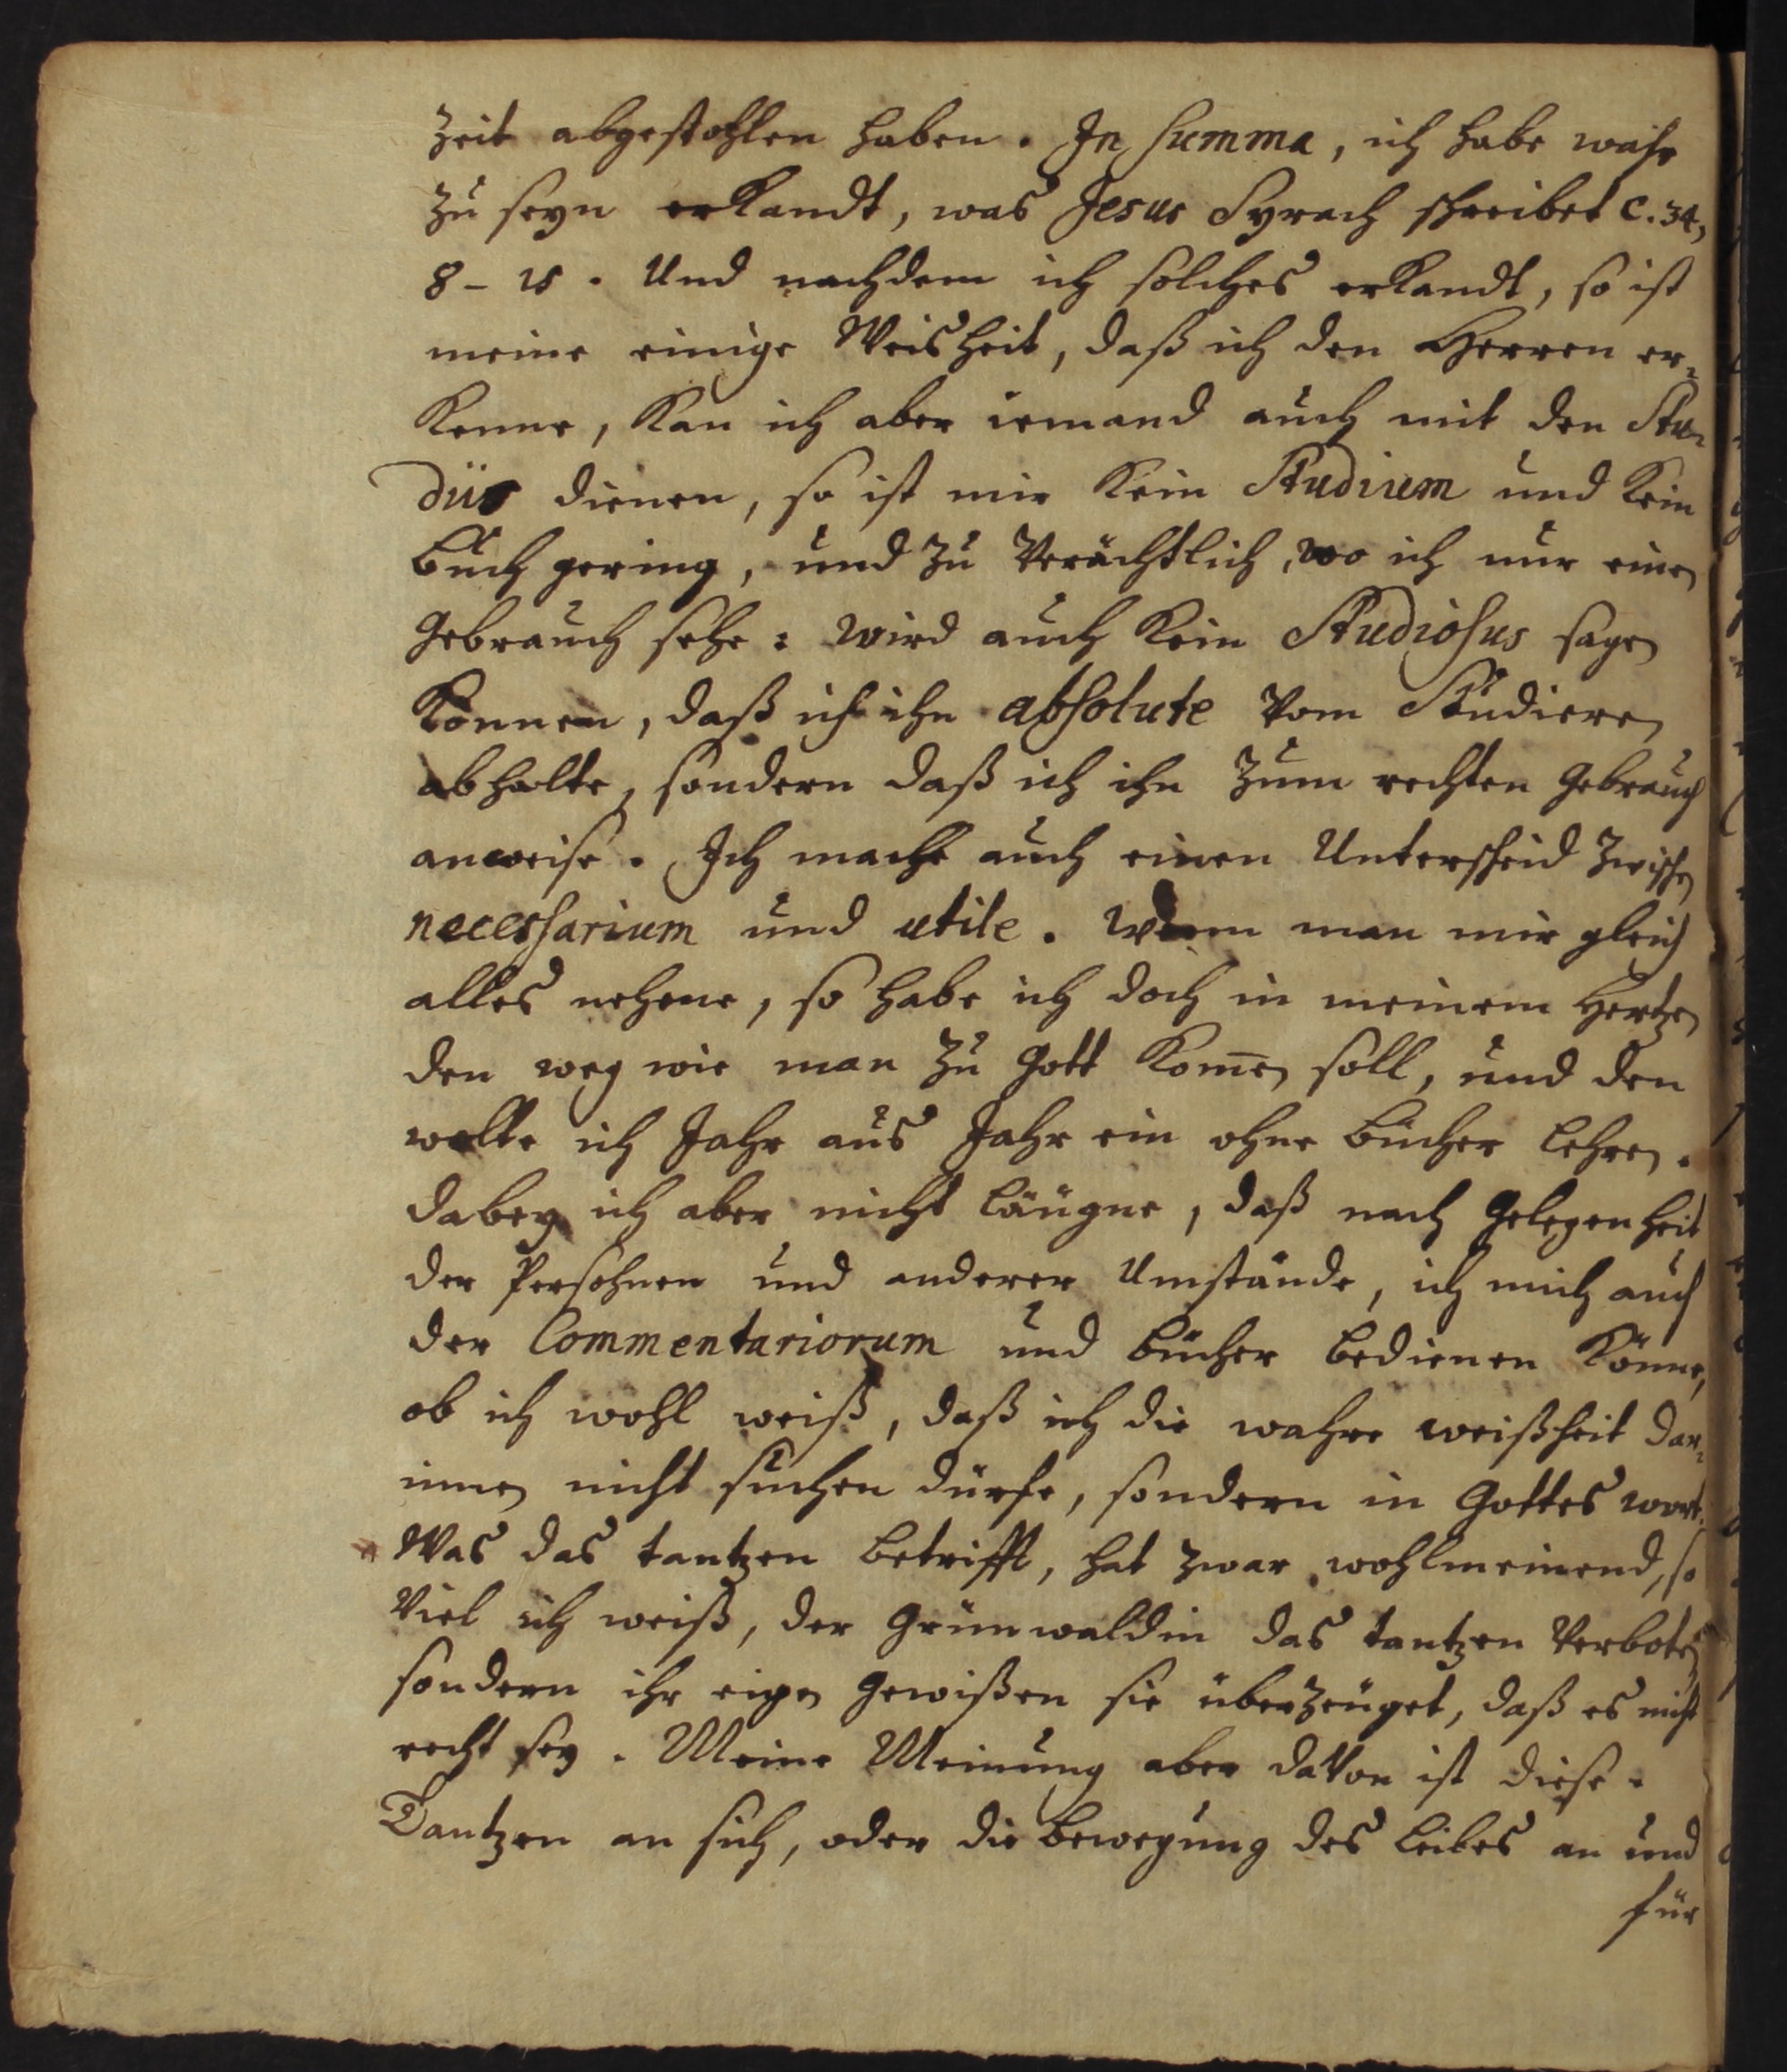 Zeit abgestohlen haben. In summa, ich habe wahr
zu seyn erkandt, was Jesus Syrach schreibet c. 34,
8-15. Und nachdem ich solches erkandt, so ist
meine einige Weisheit, daß ich den Herren er-
kenne, kan ich aber iemand auch mit den Stu-
diis dienen, so ist mir kein Studium und kein
Buch gering, und zu verächtlich, wo ich nur einen
Gebrauch sehe: wird auch kein Studiosus sagen
können, daß ich ihn absolute vom Studieren
abhalte, sondern daß ich ihn zum rechten Gebrauch
anweise. Ich mache auch einen Unterscheid zwischen
necessarium und utile. Wenn man mir gleich
alles nehme, so habe ich doch in meinem Hertzen
den weg wie man zu Gott kom̅en soll, und den
wolte ich Jahr aus Jahr ein ohne bücher lehren.
dabey ich aber nicht läugne, daß nach Gelegenheit
der Persohnen und anderer Umstände, ich mich auch
der Commentariorum und bücher bedienen könne,
ob ich wohl weiß, daß ich die wahre weißheit dar-
innen nicht suchen dürfe, sondern in Gottes wort.
Was das tantzen betrifft, hat zwar wohlmeinend, so
viel ich weiß, der Grünwaldin das tantzen verboten
sondern ihr eigen Gewißen sie überzeuget, daß es nicht
recht sey. Meine Meinung aber davon ist diese.
Tantzen an sich, oder die bewegung des leibes an und
für